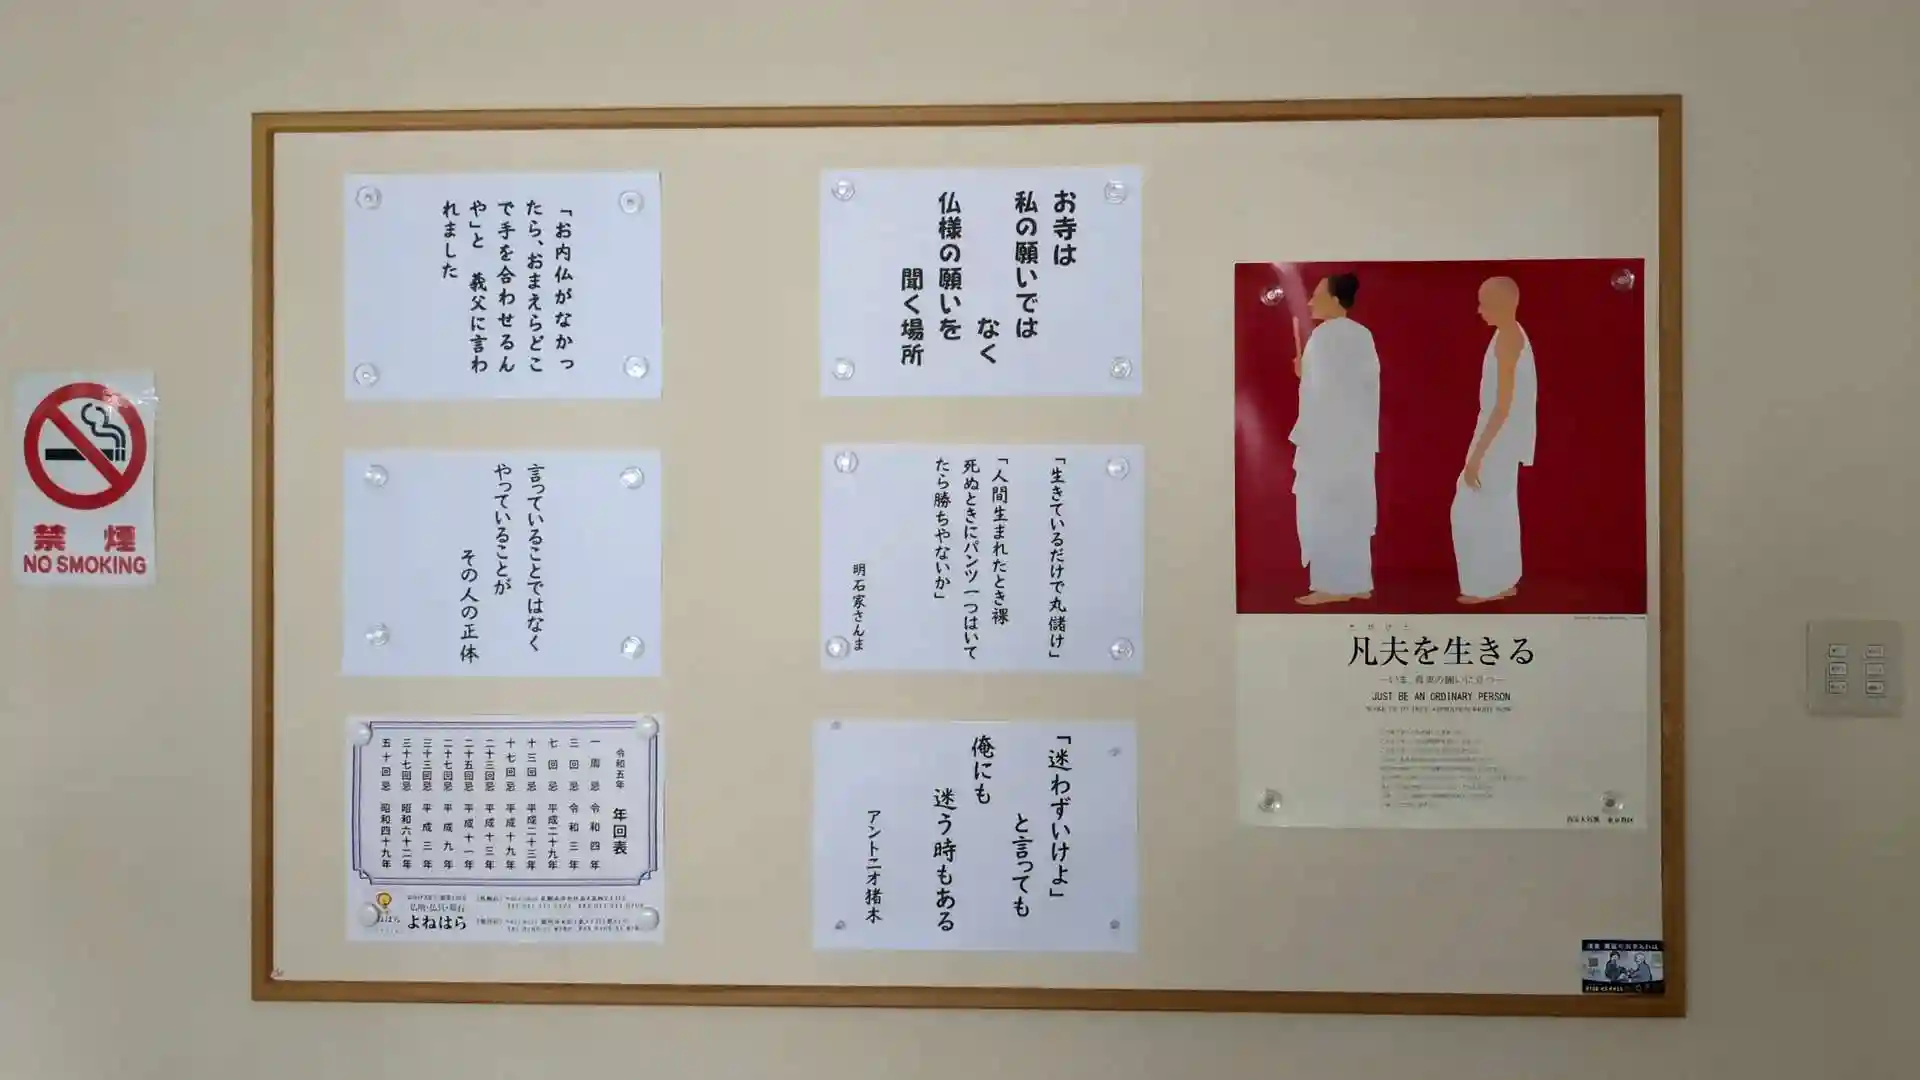 お寺は
私の願いでは
なく
仏様の願いを
聞く場所
「お内仏がなかっ
たら、おまえらどこ
で手を合わせるん
や」と 義父に言わ
れました
「生きているだけで丸儲け」
「人間生まれたとき裸
死ぬときにパンツ一つはいて
たら勝ちやないか」
明石家さんま
言っていることではなく
やっていることが
その人の正体
「迷わずいけよ」
と言っても
俺にも
迷う時もある
アントニオ猪木
令和五年 年回表
一周忌 令和四年
三回忌 令和三年
七回忌 平成二十九年
十三回忌 平成二十三年
十七回忌 平成十九年
二十三回忌 平成十三年
二十五回忌 平成十一年
二十七回忌 平成九年
三十三回忌 平成三年
三十七回忌 昭和六十二年
五十回忌 昭和四十九年
仏壇・仏具・墓石
よねはら
凡夫を生きる
JUST BE AN ORDINARY PERSON
禁煙
NO SMOKING